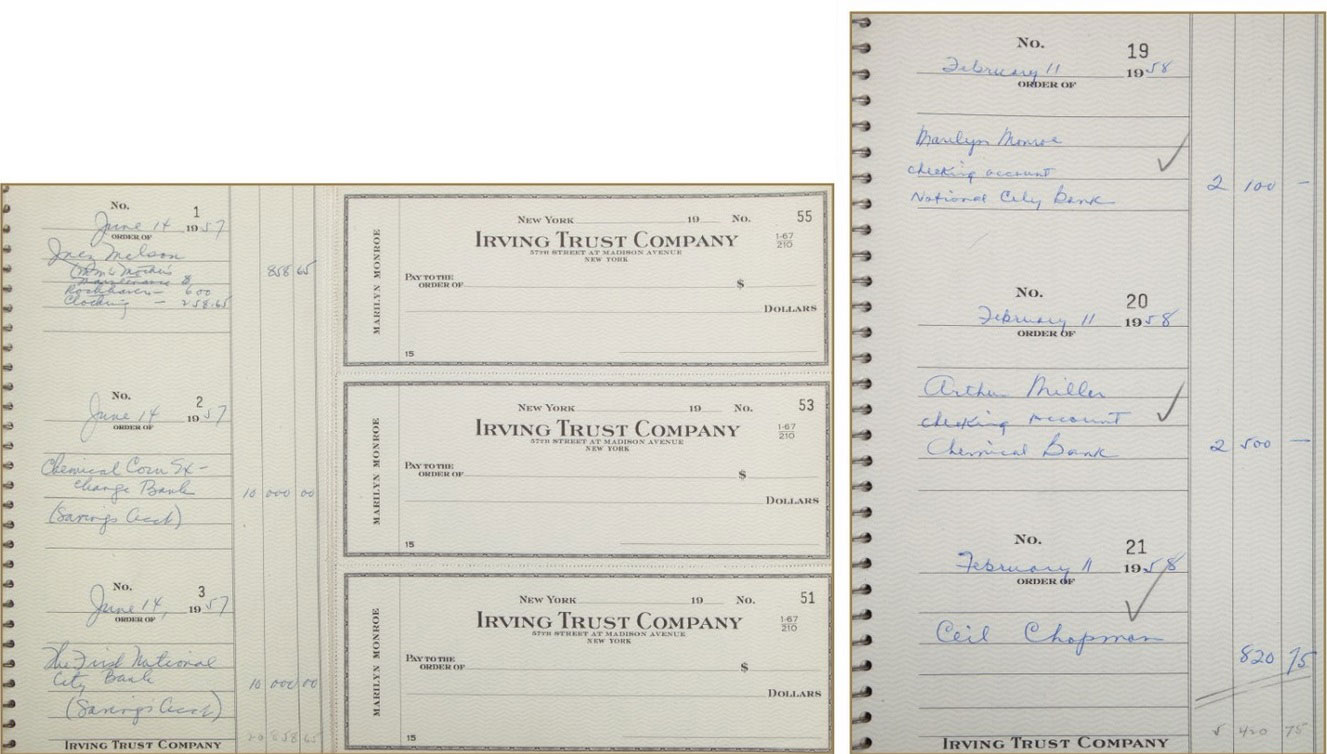 No. 1
June 14 1957
ORDER OF
Inez Melson
(MM's Mother's
Maintenance $
Rockhaven — 600
Clothing — 258.65
858 65
No. 2
June 14 1957
ORDER OF
Chemical Corn Ex-
change Bank
10 000 00
(Savings Acct)
No. 3
June 14, 1957
ORDER OF
The First National
City Bank
10 000 00
(Savings Acct)
20 858 65
IRVING TRUST COMPANY
NEW YORK 19 No. 55
IRVING TRUST COMPANY
1-67
210
57TH STREET AT MADISON AVENUE
NEW YORK
PAY TO THE
ORDER OF $
DOLLARS
MARILYN MONROE
15
NEW YORK 19 No. 53
IRVING TRUST COMPANY
1-67
210
57TH STREET AT MADISON AVENUE
NEW YORK
PAY TO THE
ORDER OF $
DOLLARS
MARILYN MONROE
15
NEW YORK 19 No. 51
IRVING TRUST COMPANY
1-67
210
57TH STREET AT MADISON AVENUE
NEW YORK
PAY TO THE
ORDER OF $
DOLLARS
MARILYN MONROE
15
No. 19
February 11 1958
ORDER OF
Marilyn Monroe
checking account
2 100 —
National City Bank
No. 20
February 11 1958
ORDER OF
Arthur Miller
checking Account
Chemical Bank
2 500 —
No. 21
February 11 1958
ORDER OF
Ceil Chapman
820 75
5 420 75
IRVING TRUST COMPANY